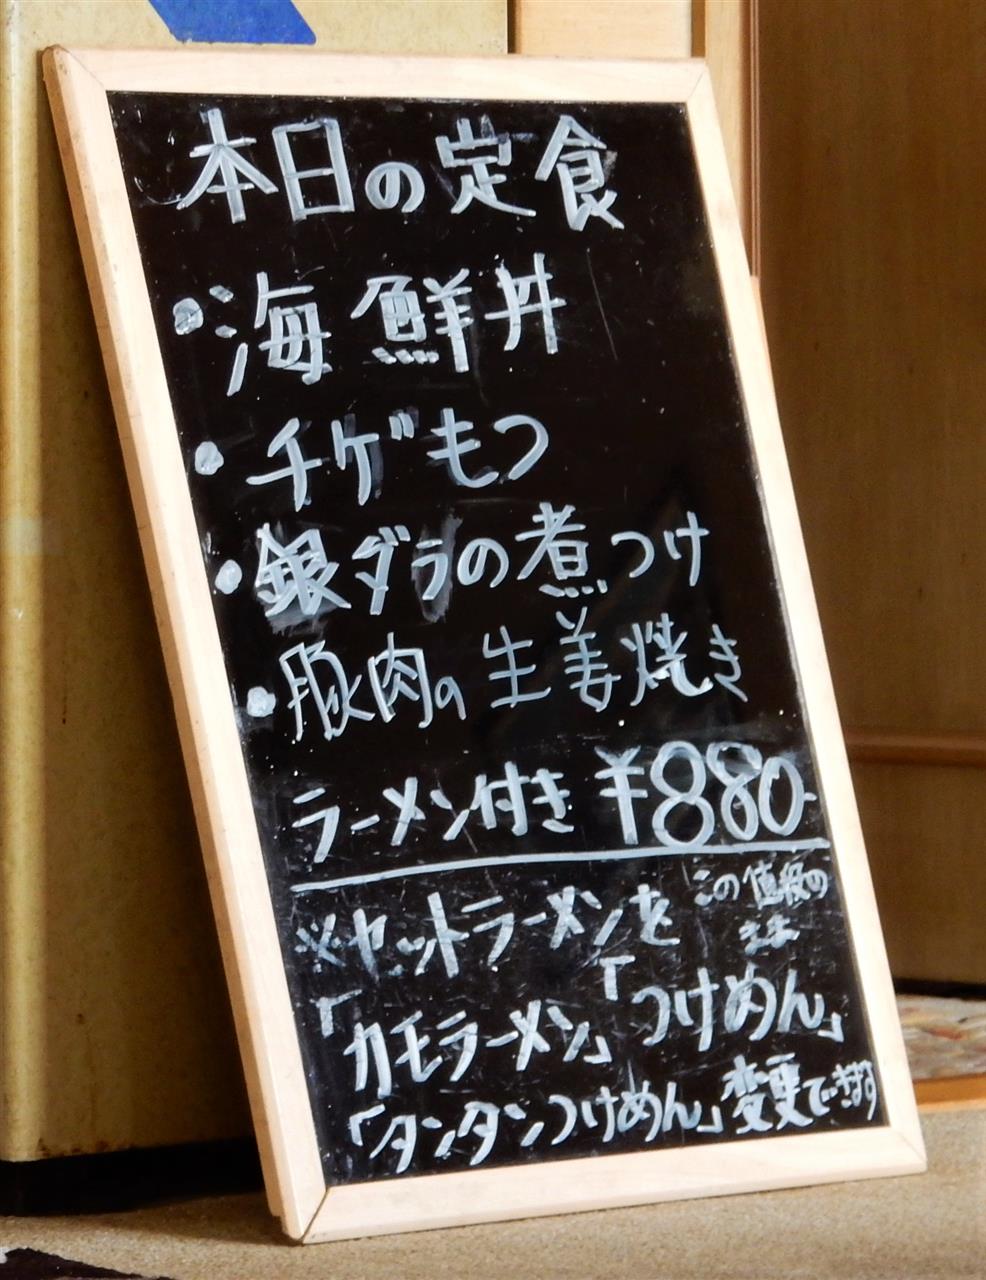 本日の定食
・海鮮丼
・チゲもつ
・銀ダラの煮つけ
・豚肉の生姜焼き
ラーメン付き ¥880-
※セットラーメンを この値段の
まま
「カモラーメン」「つけめん」
「タンタンつけめん」変更できます